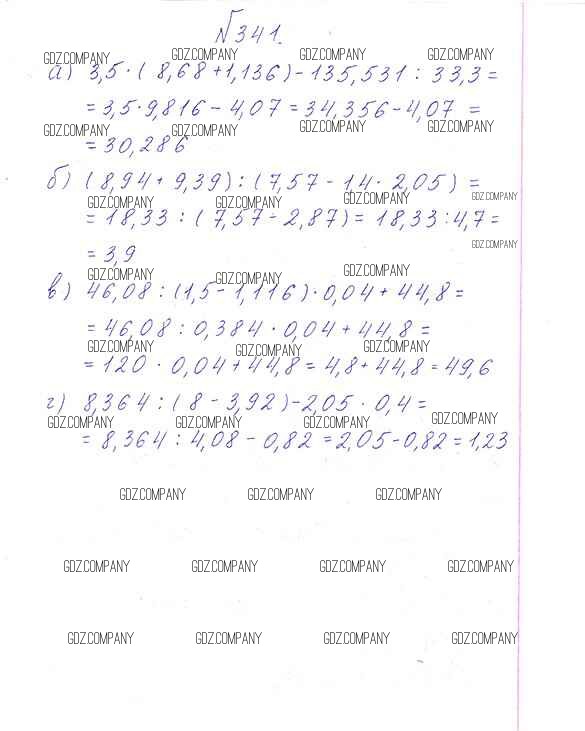 №341.
GDZ.COMPANY GDZ.COMPANY GDZ.COMPANY GDZ.COMPANY
а) 3,5·(8,68+1,136)-135,531:33,3=
=3,5·9,816-4,07=34,356-4,07=
GDZ.COMPANY GDZ.COMPANY GDZ.COMPANY GDZ.COMPANY
=30,286
б) (8,94+9,39):(7,57-1,4·2,05)=
GDZ.COMPANY GDZ.COMPANY GDZ.COMPANY GDZ.COMPANY
=18,33:(7,57-2,87)=18,33:4,7=
GDZ.COMPANY
=3,9
GDZ.COMPANY GDZ.COMPANY GDZ.COMPANY
в) 46,08:(1,5-1,116)·0,04+44,8=
=46,08:0,384·0,04+44,8=
GDZ.COMPANY GDZ.COMPANY GDZ.COMPANY
=120·0,04+44,8=4,8+44,8=49,6
г) 8,364:(8-3,92)-2,05·0,4=
GDZ.COMPANY GDZ.COMPANY GDZ.COMPANY GDZ.COMPANY
=8,364:4,08-0,82=2,05-0,82=1,23
GDZ.COMPANY GDZ.COMPANY GDZ.COMPANY
GDZ.COMPANY GDZ.COMPANY GDZ.COMPANY GDZ.COMPANY
GDZ.COMPANY GDZ.COMPANY GDZ.COMPANY GDZ.COMPANY